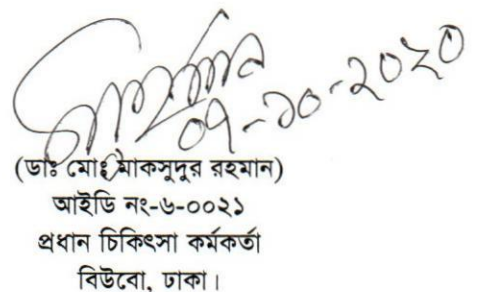 ০৭-১০-২০২০
(ডাঃ মোঃ মাকসুদুর রহমান)
আইডি নং-৬-০০২১
প্রধান চিকিৎসা কর্মকর্তা
বিউবো, ঢাকা।